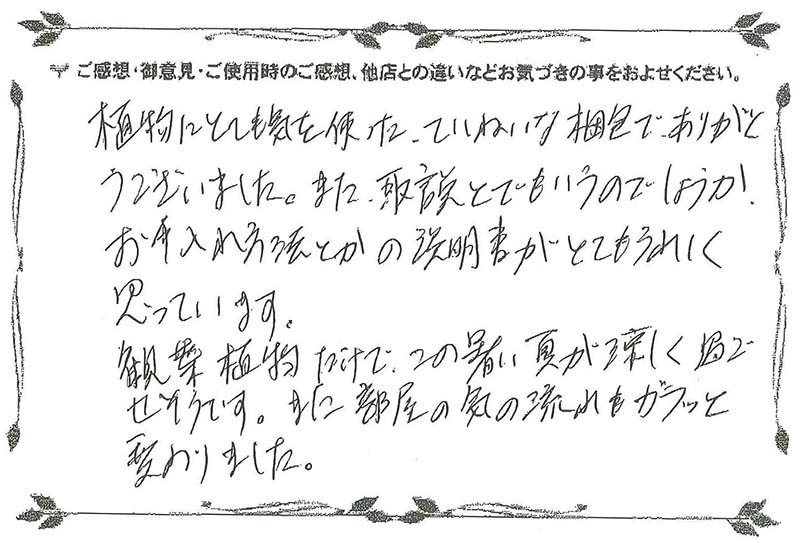 ご感想・御意見・ご使用時のご感想、他店との違いなどお気づきの事をおよせください。
植物にとても気を使った、ていねいな梱包で、ありがと
うございました。また、取説とでもいうのでしょうか、
お手入れ方法とかの説明書がとてもうれしく
思っています。
観葉植物だけで、この暑い夏が涼しく過ご
せそうです。また部屋の気の流れもガラッと
変わりました。